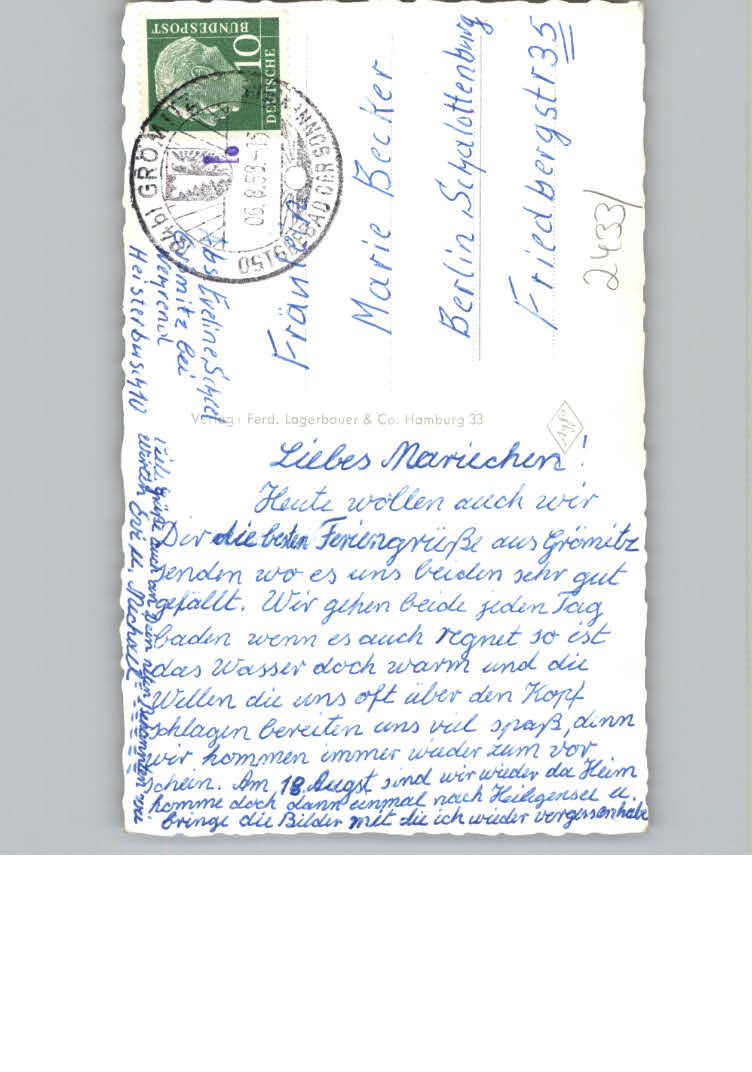 DEUTSCHE
BUNDESPOST
10
(24b) GRÖMITZ
06.8.58-15
OSTSEEBAD DER SONNENSEITE
Abs. Eveline
Grömitz bei
Wehrend
Heisterbusch 10
Fräulein
Marie Becker
Berlin Scharlottenburg
Friedbergstr 35
2433/
Verlag: Ferd. Lagerbauer & Co. Hamburg 33
Agfa
Liebes Mariechen!
Heute wollen auch wir
Dir die besten Feriengrüße aus Grömitz
senden wo es uns beiden sehr gut
gefällt. Wir gehen beide jeden Tag
baden wenn es auch regnet so ist
das Wasser doch warm und die
Wellen die uns oft über den Kopf
schlagen bereiten uns viel spaß, denn
wir kommen immer wieder zum vor
schein. Am 18. Augst sind wir wieder da Heim
komme doch dann einmal nach Heiligensee u.
bringe die Bilder mit die ich wieder vergessen habe
Viele Grüße auch von Deinen alten Bekannten
Evi u. Michael